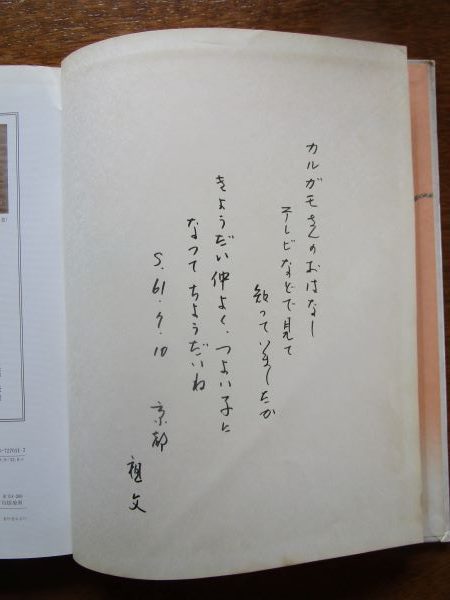 カルガモさんのおはなし
テレビなどで見て
知っていましたか
きょうだい仲よく、つよい子に
なってちょうだいね
S.61.9.10 京都 祖父